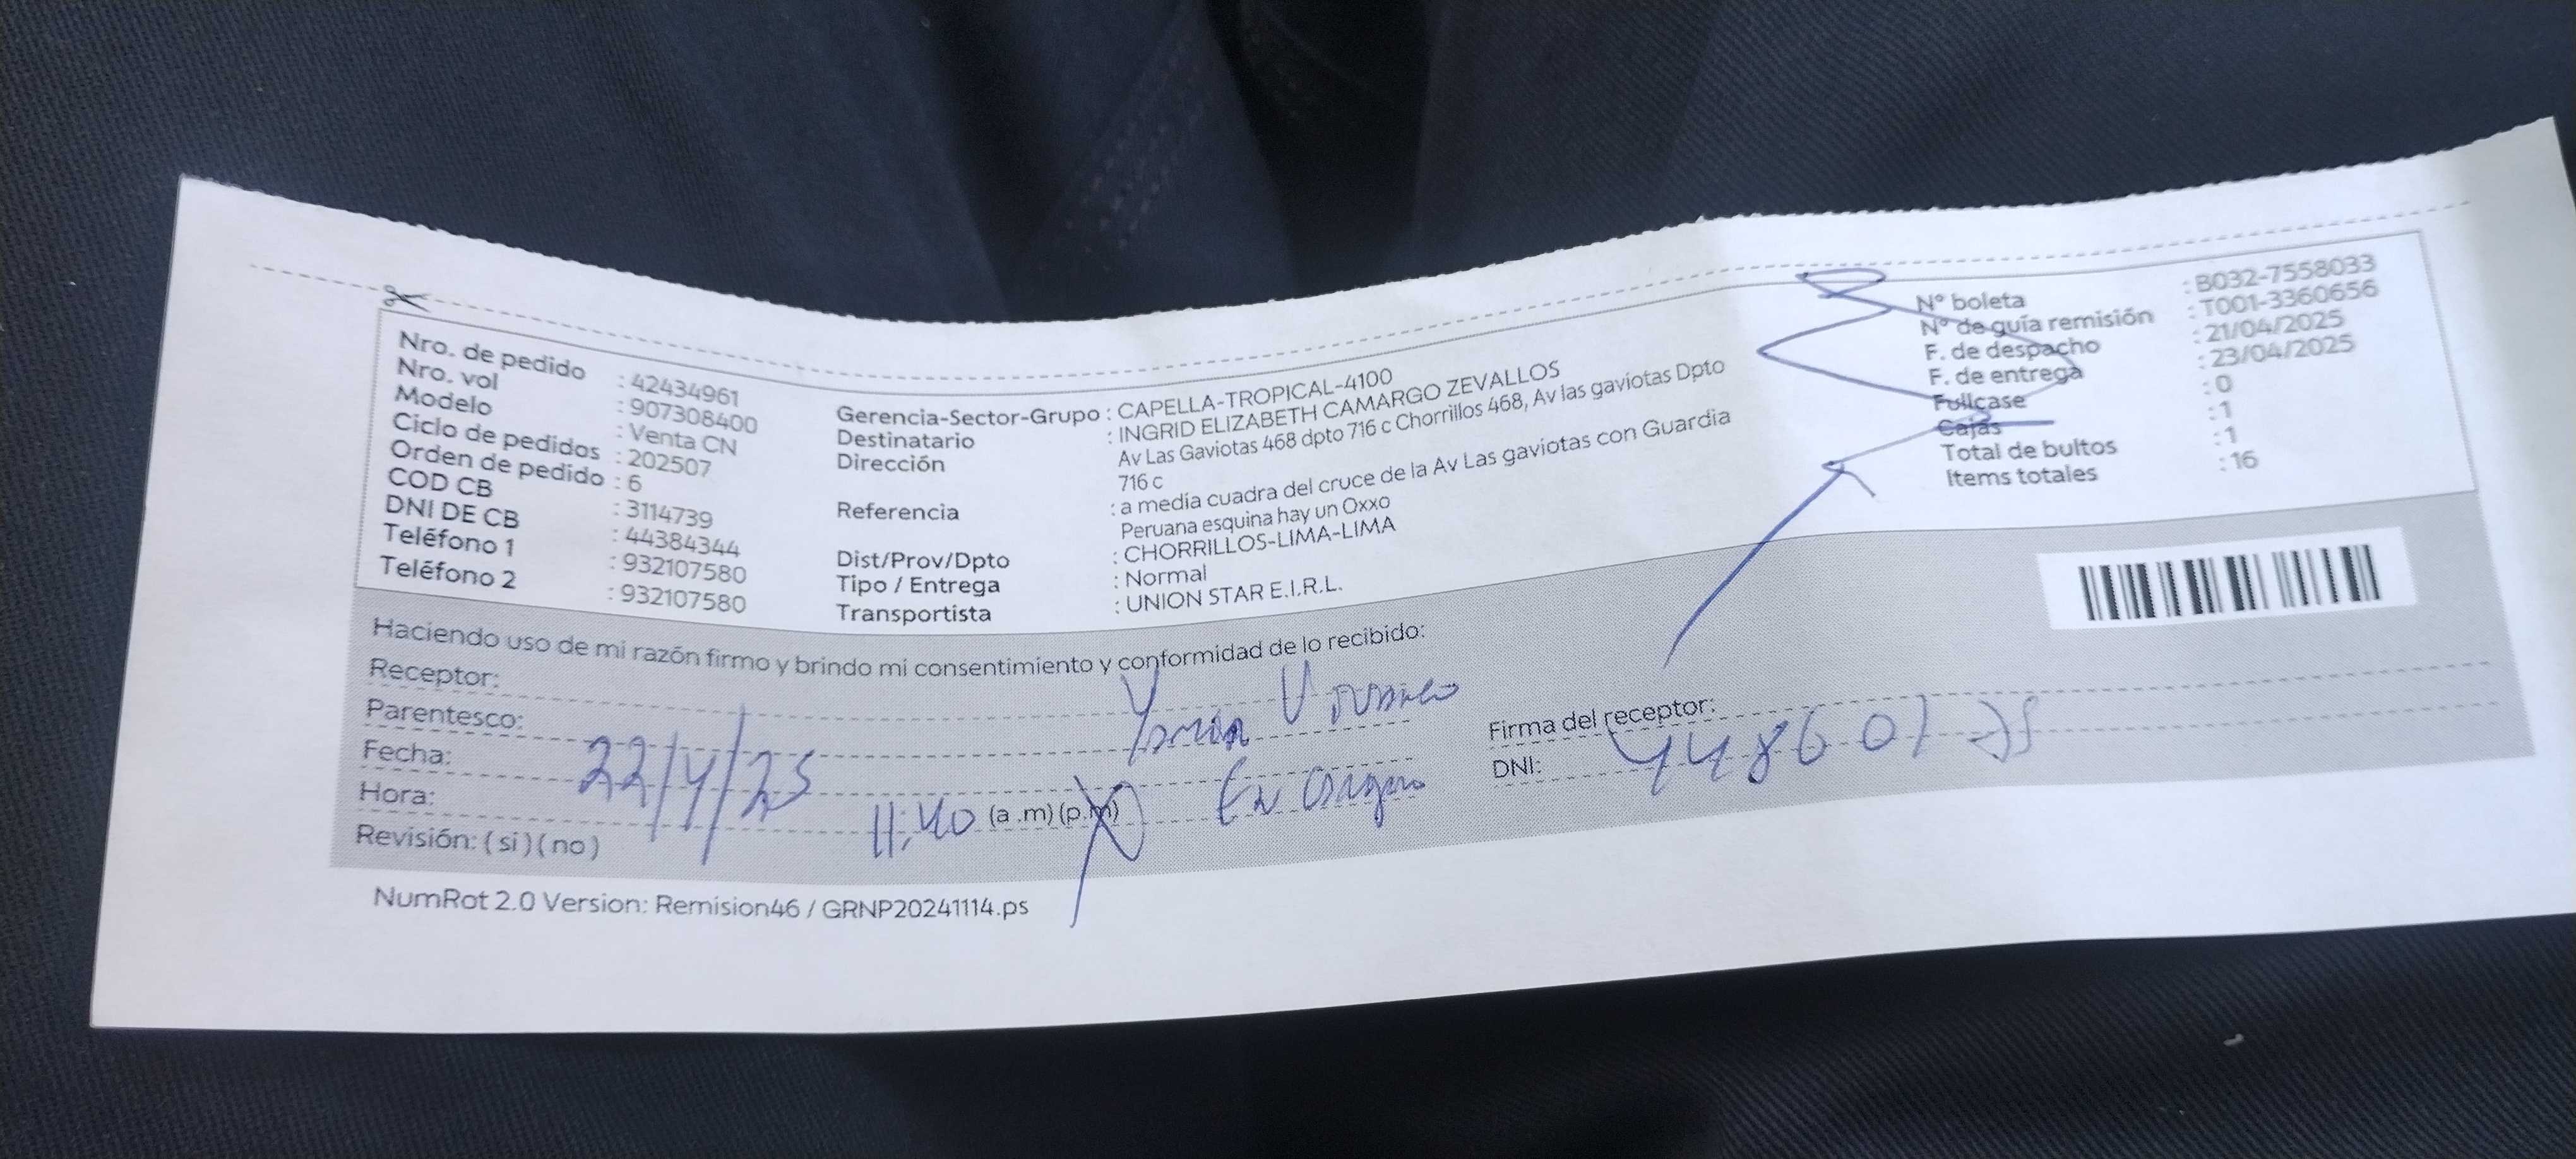 Nro. de pedido : 42434961
Nro. vol : 907308400
Modelo : Venta CN
Ciclo de pedidos : 202507
Orden de pedido : 6
COD CB : 3114739
DNI DE CB : 44384344
Teléfono 1 : 932107580
Teléfono 2 : 932107580
Gerencia-Sector-Grupo : CAPELLA-TROPICAL-4100
Destinatario : INGRID ELIZABETH CAMARGO ZEVALLOS
Dirección Av Las Gaviotas 468 dpto 716 c Chorrillos 468, Av las gaviotas Dpto
716 c
Referencia : a media cuadra del cruce de la Av Las gaviotas con Guardia
Peruana esquina hay un Oxxo
Dist/Prov/Dpto : CHORRILLOS-LIMA-LIMA
Tipo / Entrega : Normal
Transportista : UNION STAR E.I.R.L.
N° boleta : B032-7558033
N° de guía remisión : T001-3360656
F. de despacho : 21/04/2025
F. de entrega : 23/04/2025
Fullcase : 0
Cajas : 1
Total de bultos : 1
Items totales : 16
Haciendo uso de mi razón firmo y brindo mi consentimiento y conformidad de lo recibido:
Receptor:
Parentesco:
Fecha: 22/4/25
Hora: 11:40 (a .m) (p.m)
Revisión: ( si ) ( no )
Firma del receptor:
DNI: 448601
NumRot 2.0 Version: Remision46 / GRNP20241114.ps